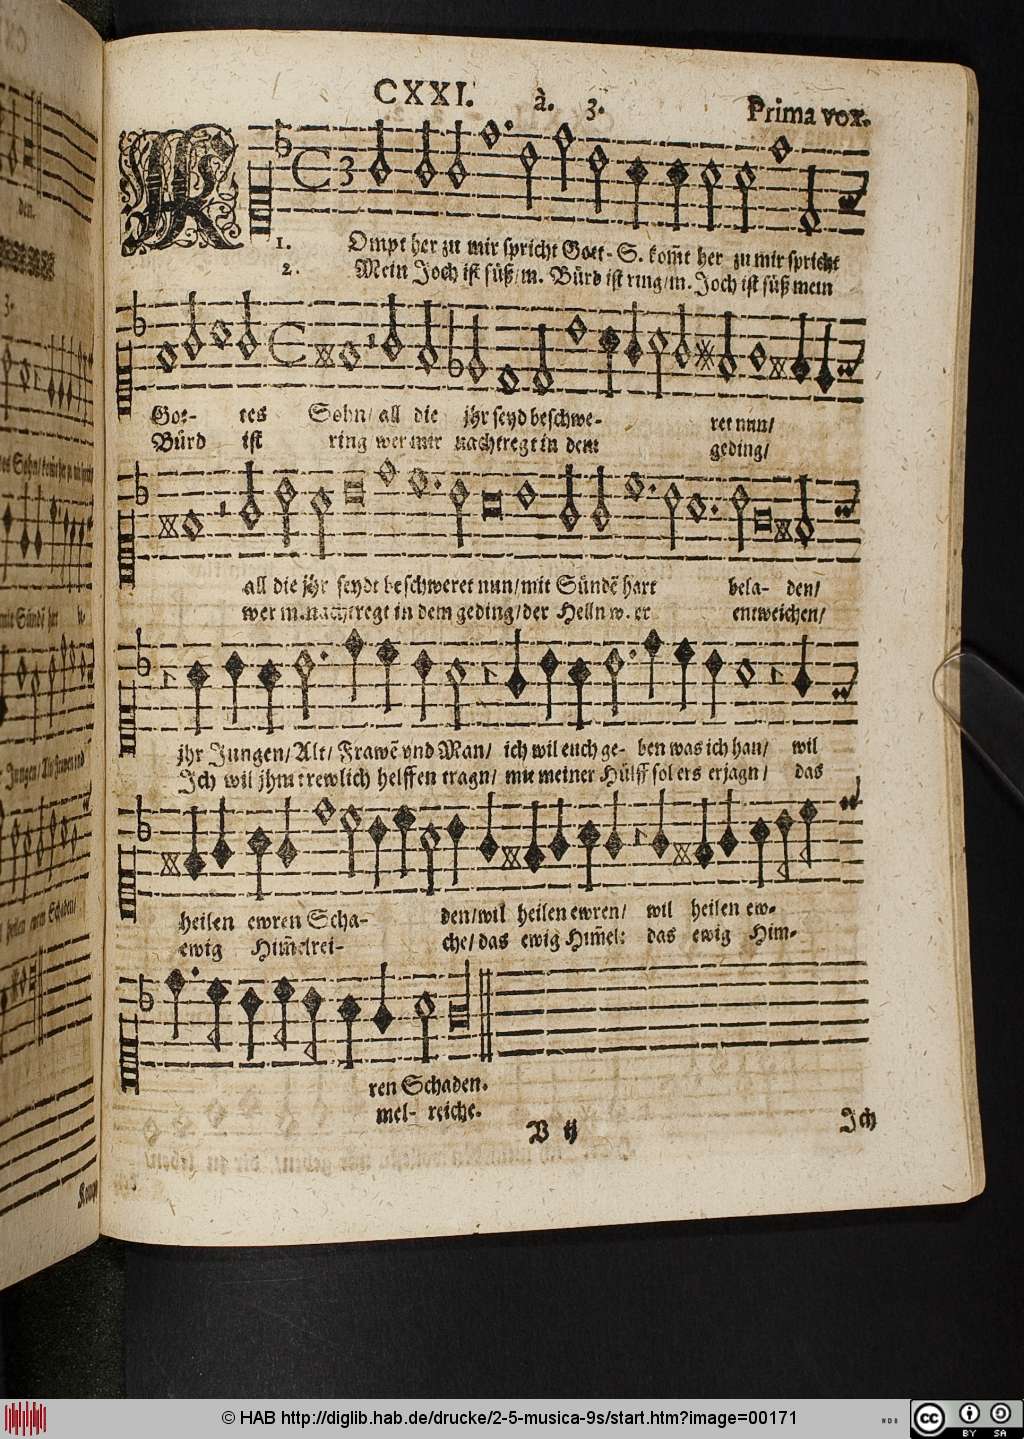 CXXI. à. 3. Prima vox.
K
1. Ompt her zu mir spricht Gott- S. kom̃t her zu mir spricht
2. Mein Joch ist süß/m. Bürd ist ring/m. Joch ist süß mein
Got- tes Sohn/ all die jhr seyd beschwe- ret nun/
Bürd ist ring wer mir nachtregt in dem geding/
all die jhr seydt beschweret nun/mit Sündẽ hart bela- den/
wer m.nachtregt in dem geding/der Helln w. er entweichen/
jhr Jungen/Alt/ Frawẽ vnd Man/ ich wil euch ge- ben was ich han/ wil
Ich wil jhm trewlich helffen tragn/ mit meiner Hülff sol ers erjagn/ das
heilen ewren Scha- den/wil heilen ewren/ wil heilen ew-
ewig Him̃elrei- che/das ewig Him̃el: das ewig Him-
ren Schaden.
mel- reiche.
V ij Ich
© HAB http://diglib.hab.de/drucke/2-5-musica-9s/start.htm?image=00171
cc BY SA